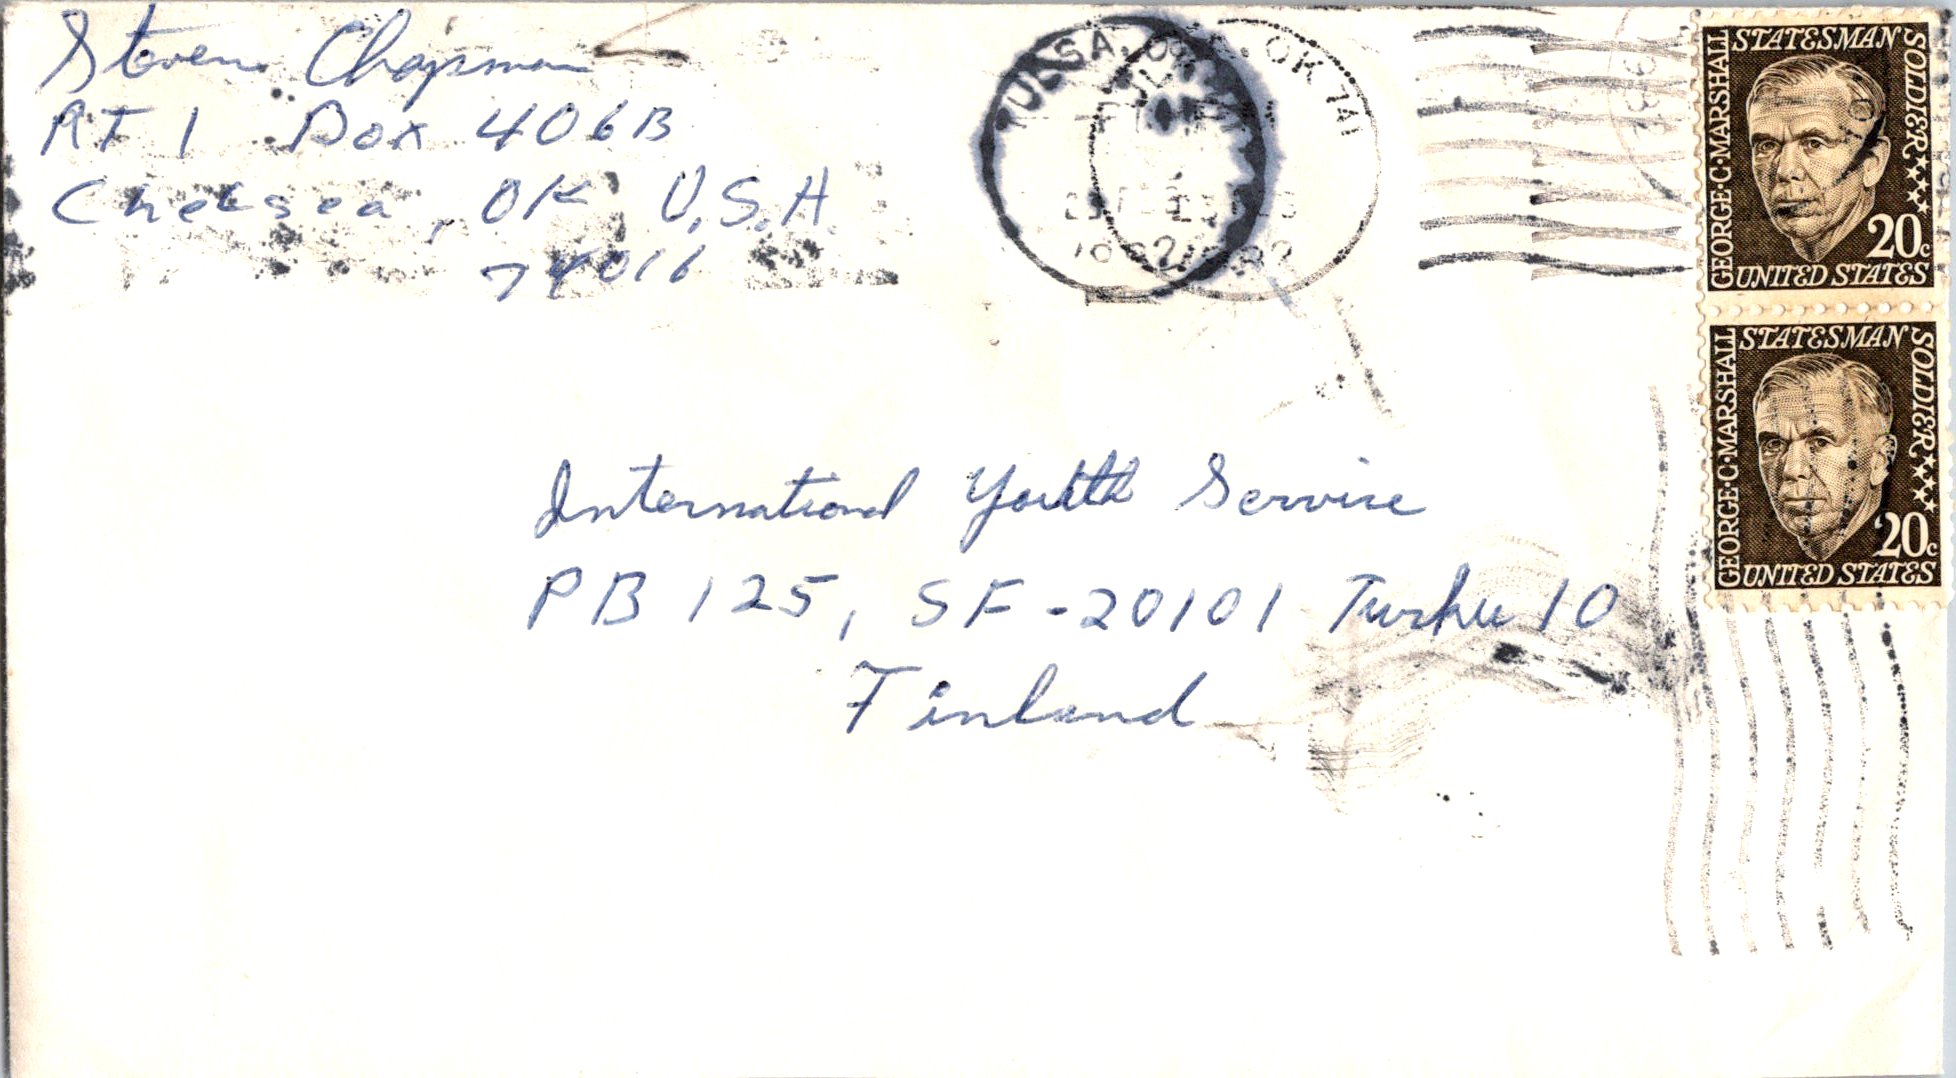 Steven Chapman
RT 1 Box 406B
Chelsea, OK U.S.A.
74016
TULSA, OK
OK 741
1982
GEORGE·C·MARSHALL
STATESMAN
SOLDIER
20c
UNITED STATES
GEORGE·C·MARSHALL
STATESMAN
SOLDIER
20c
UNITED STATES
International Youth Service
PB 125, SF-20101 Turku 10
Finland